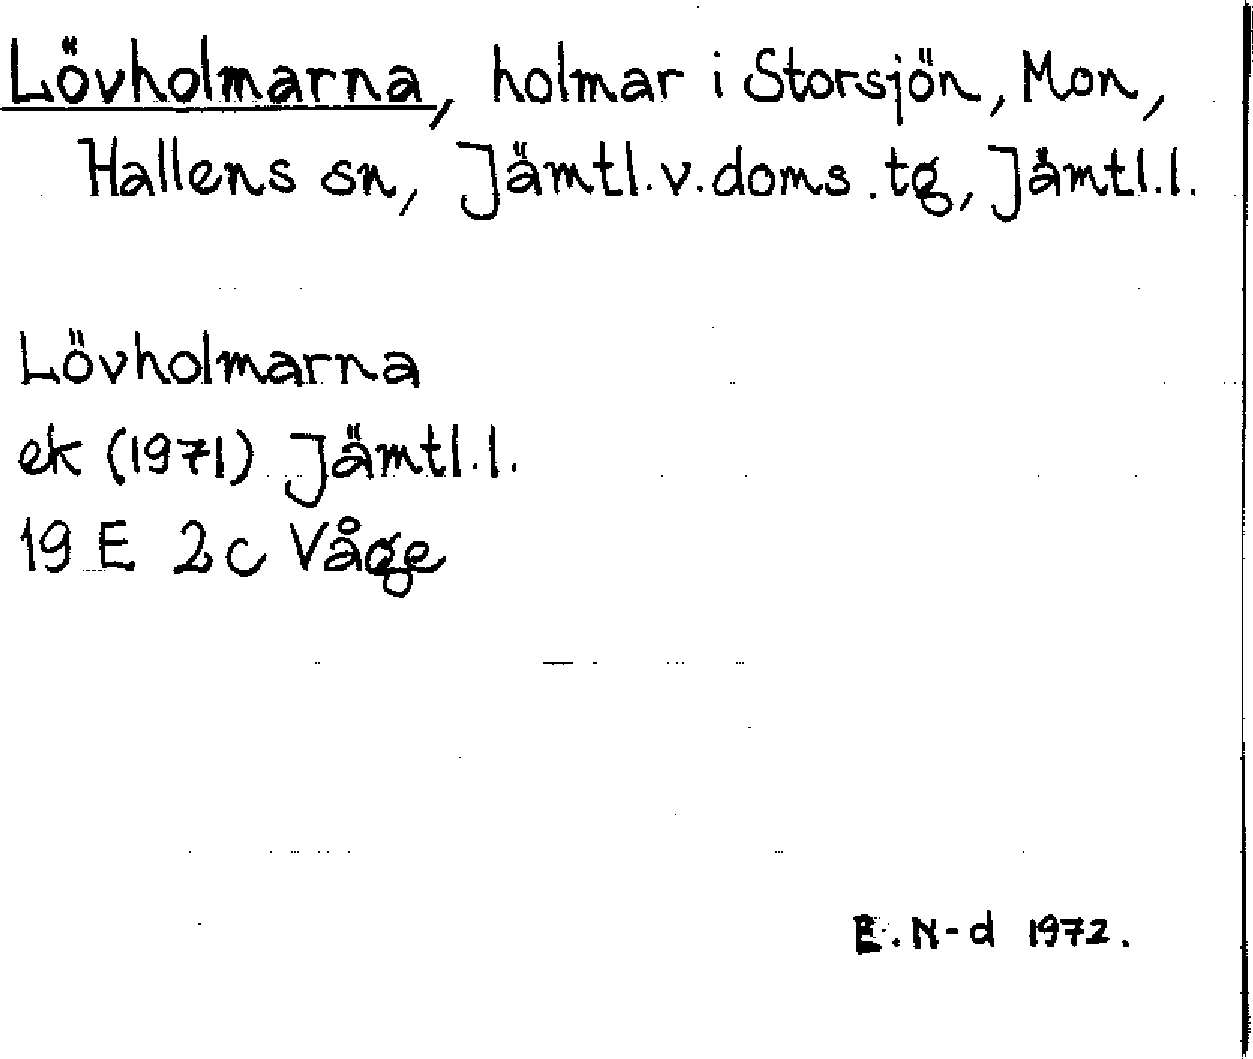 Lövholmarna, holmar i Storsjön, Mon,
Hallens sn, Jämtl.v.doms.tg, Jämtl.l.
Lövholmarna
ek (1971) Jämtl.l.
19 E 2c Våge
E.N-d 1972.